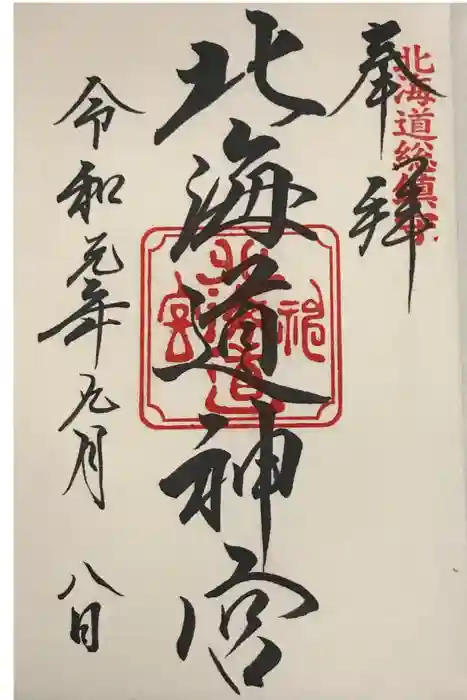 奉拝
北海道総鎮守
北海道神宮
北海道神宮
令和元年九月八日